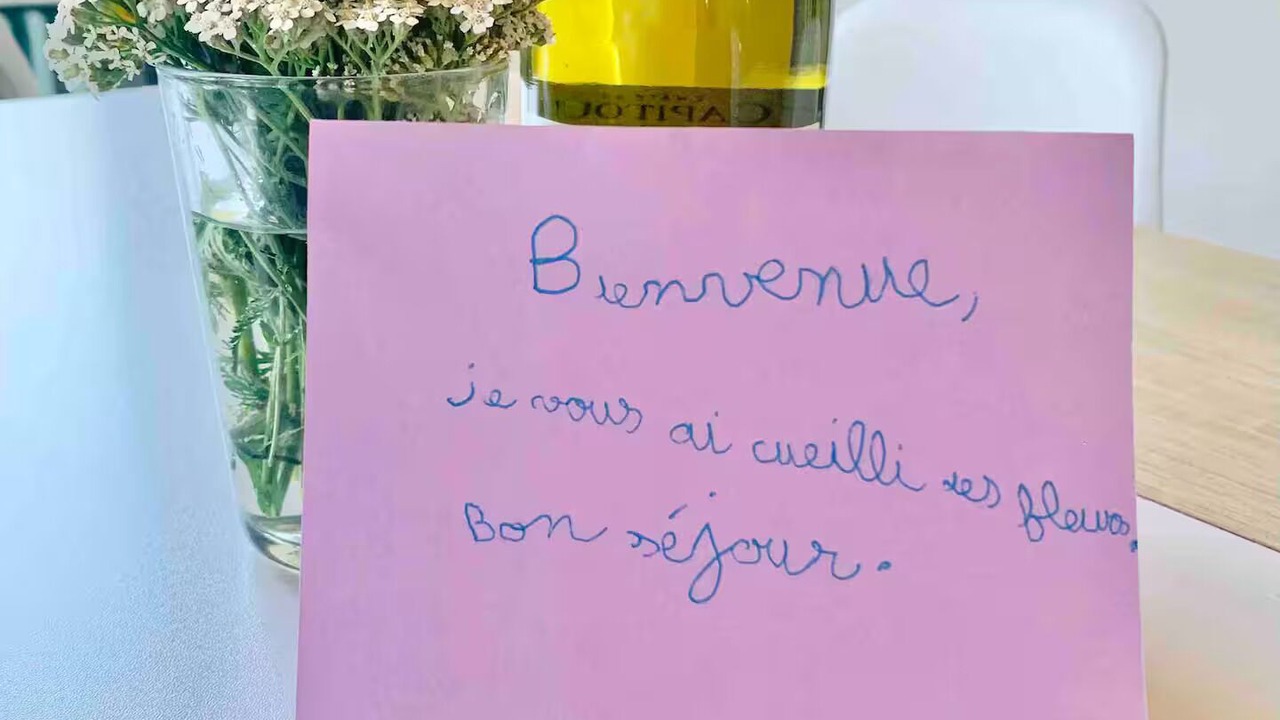 CAPITOUL
Bienvenue,
je vous ai cueilli ses fleurs.
Bon séjour.